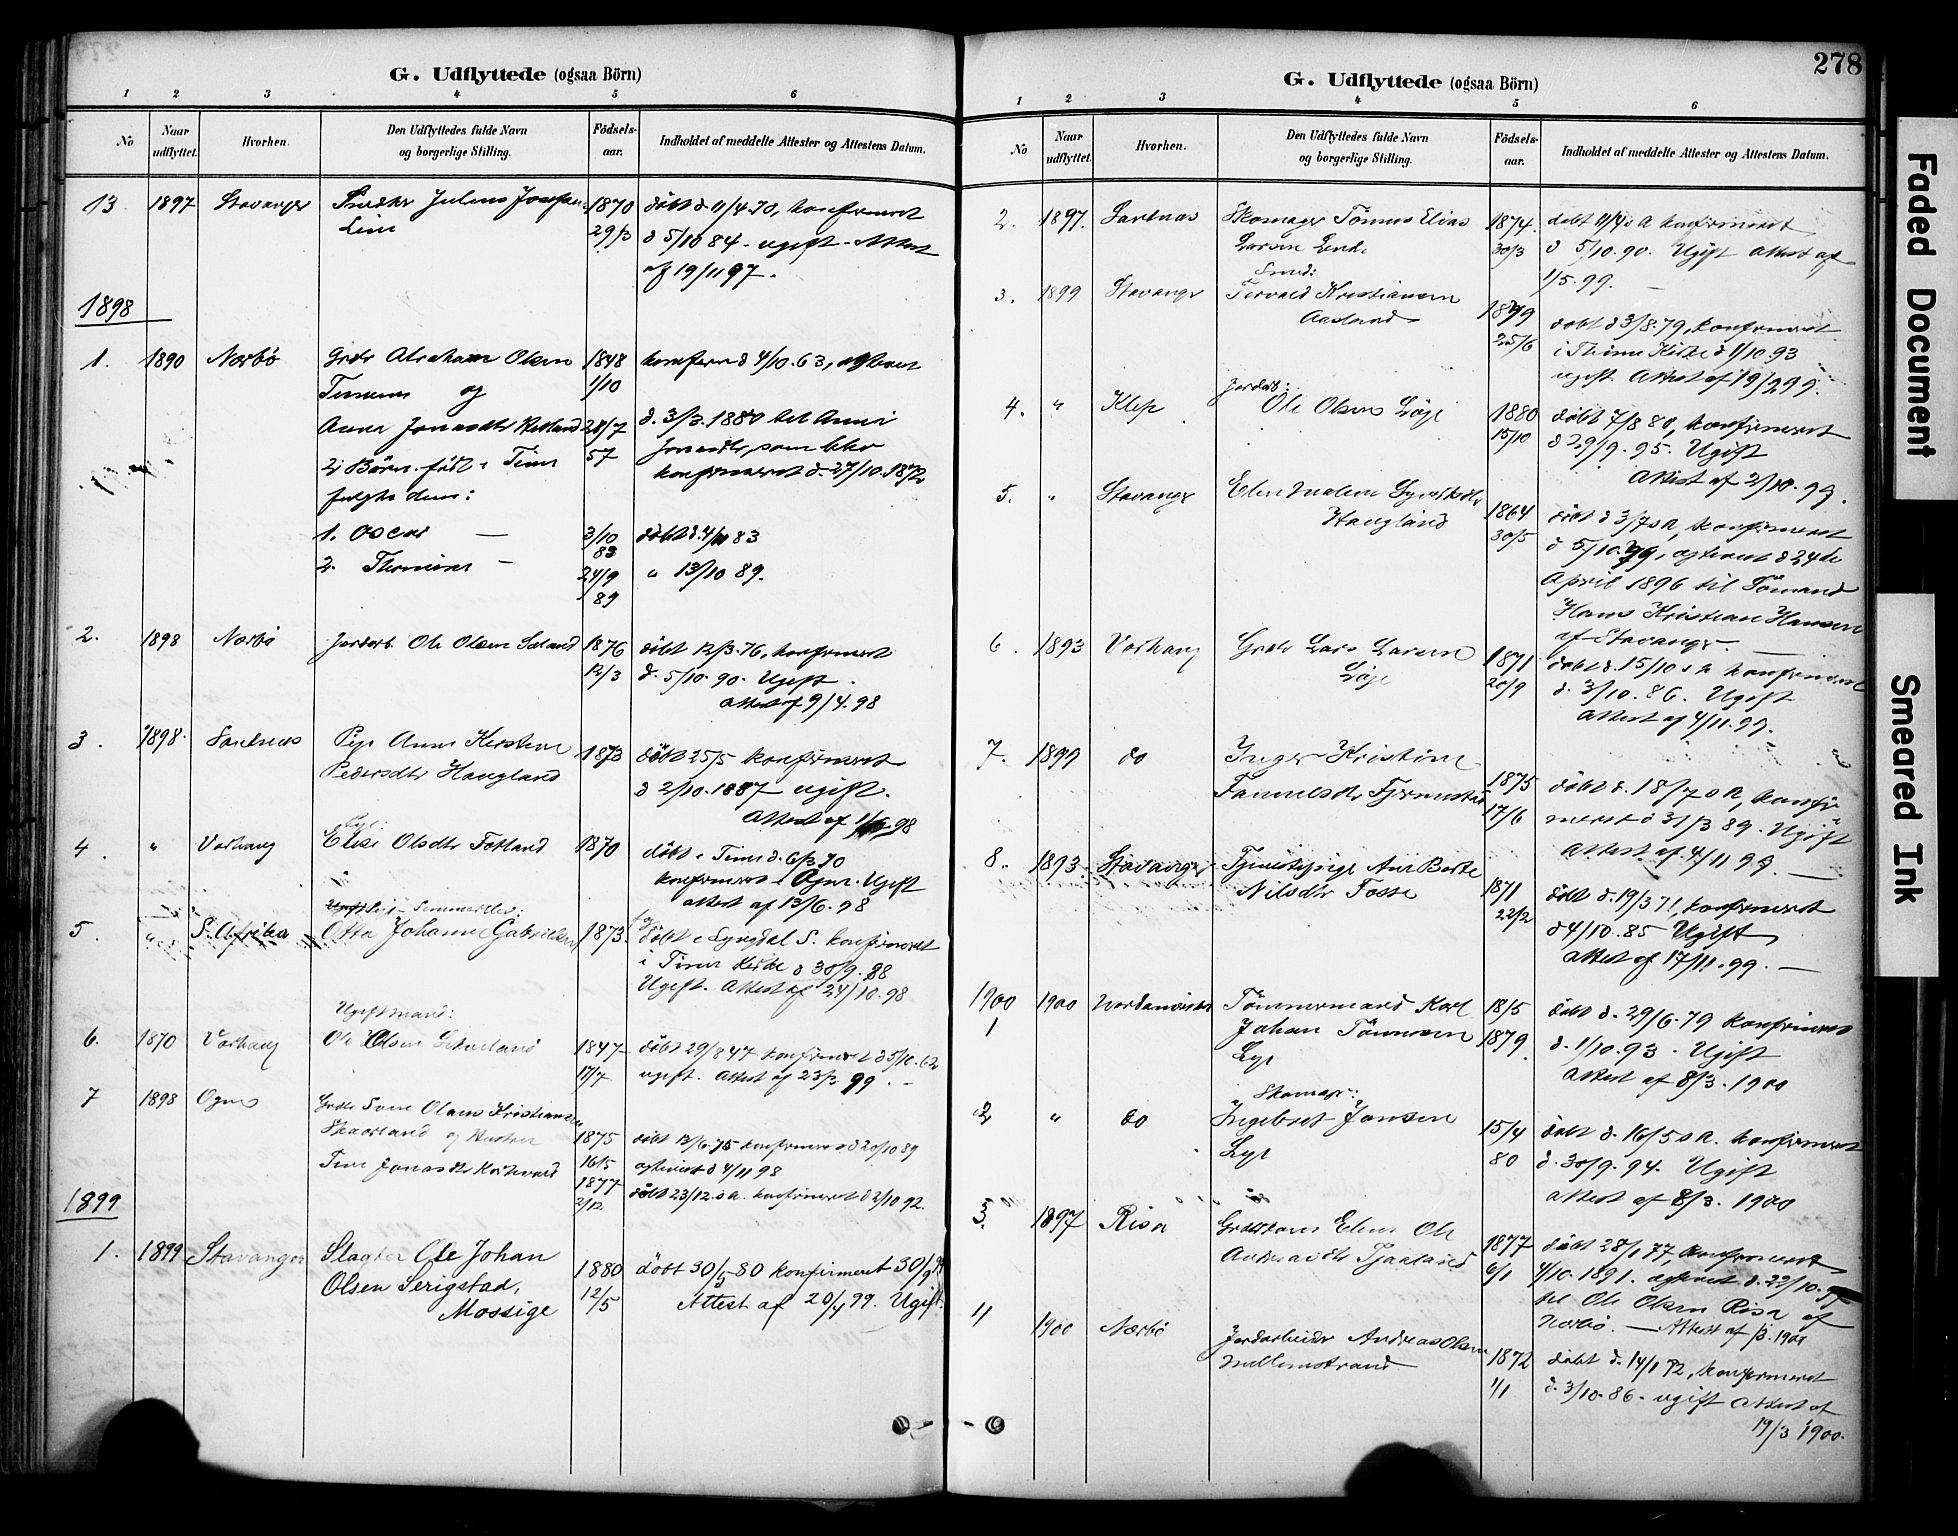 G. Udflyttede (ogsaa Börn)
1 2 3 4 5 6
No
Naar udflyttet.
Hvorhen.
Den Udflyttedes fulde Navn og borgerlige Stilling.
Födsels-aar.
Indholdet af meddelte Attester og Attestens Datum.
13 1897 Stavanger Julius 1870 döbt d 11/4 70, konfirmeret
Line 29/3 d 5/10 84 - ugift - Attest
af 19/11 97.
1898
1. 1890 Nærbö Grdr Abraham Olsen 1848 konfirm d 4/10. 63, egteviet
og 1/10
Anna Jonasdtr 28/7 d. 3/3. 1880 til Anna
2 Börn födt i Time 57 Jonasdtr, som blev
fulgte dem: konfirmeret d. 27/10. 1872
1. Oscar — 3/10 83 döbt d. 4/11 83
2. — 24/9 89 " 13/10 89.
2. 1898 Nærbö Jordarb. Ole Olsen 1876 döbt 12/3. 76, konfirmeret
12/3 d. 5/10. 90. Ugift.
Attest af 9/4. 98
3. 1898. Sandnes Pige Anne Kirstine 1873 döbt 25/5 konfirmeret
Pedersdtr Haugland d 2/10. 1887 ugift.
Attest af 98
4. " Varhaug Elise Olsdtr Fotland 1870 döbt i Time d. 6/3 70
konfirmeret i Ogne. Ugift
Attest af 13/6. 98
5. " S. Afrika Otto Johannes Gabrielsen 1873. döbt i Lyngdal S. konfirmeret
i Time Kirke d 30/9. 88
Ugift. Attest af 24/10. 98
Ugift mand:
6. 1870 Varhaug Ole Olsen 1847 döbt 29/8 47 konfirmeret d 5/10. 62
17/7 ugift. Attest af 23/3. 99. -
7 1898 Ogne Grdr Sven Olaus Kristiansen
Skaarland og Hustru 1875 döbt 13/6. 75 konfirmeret d 20/10 89
Jonasdtr 16/5 egteviet d 4/11 98
1877 2/12 döbt 23/12. s A. konfirmeret d 2/10 92.
1899
1. 1899 Stavanger Slagter Ole Johan
Olsen Serigstad, 1880 döbt 30/5 80 konfirmeret 30/9
Mossige 12/5 Attest af 20/4 99. Ugift.
278
G. Udflyttede (ogsaa Börn)
1 2 3 4 5 6
No
Naar udflyttet.
Hvorhen.
Den Udflyttedes fulde Navn og borgerlige Stilling.
Födsels-aar.
Indholdet af meddelte Attester og Attestens Datum.
2. 1897. Sandnes Skomager Tönnes Elias 1874. döbt 11/4 s A konfirmeret
Larsen 30/3 d 5/10. 90. Ugift Attest af
Smed: 1/5. 99. —
3. 1899 Stavanger Torvald Kristiansen
Aasland 1879 döbt d 3/8. 79, konfirmeret
25/6 i Thime Kirke d 1/10 93
ugift. Attest af 19/2 99.
Jordarb:
4. " Klep Ole Olsen 1880 döbt 7/8 80, konfirmeret
15/10 d 29/9. 95. Ugift
Attest af 2/10. 99.
5. " Stavanger Elen Malene
Haugland 1864 döbt d 3/7 s A, konfirmeret
30/5 d 5/10. 79, egteviet d 24de
April 1896 til Sömand
Hans Kristian Hansen
af Stavanger —
6. 1893 Varhaug Grdr Lars Larsen 1871 döbt d. 15/10 s A konfirmeret
20/9 d. 3/10. 86. Ugift
Attest af 4/11. 99.
7. 1899 do Inger Kristine
1875 döbt d. 18/7 s A, konfir-
17/6 meret d 31/3 89. Ugift
Attest af 4/11 99. —
8. 1893. Stavanger Tjenestepige Ane Berte
Nilsdtr Fosse 1871 döbt d. 19/3 71, konfirmeret
22/2 d 4/10. 85 Ugift
Attest af 17/11. 99. —
1900
1 1900 Nordamerika Tömmermand Karl 18/5 döbt d. 29/6. 79 konfirmeret
Johan Tönnesen 1879. d. 1/10. 93. Ugift
Lye Attest af 8/3. 1900
Skomager:
2 " do Ingebret Jansen 15/4 döbt d. 16/5 s A. konfirmeret
Lye 80 d. 30/9. 94. Ugift
Attest af 8/3. 1900
3. 1897 Risa
1877 döbt 28/1 77, konfirmeret
6/1 4/10. 1891. egteviet d. 22/10.
til Ole Olsen Risa af
Nærbö. — Attest af 1900
4 1900 Nærbö Jordarbeider Andreas Olsen
1872 döbt d. 14/1 72, konfirmeret
1/1 d. 3/10. 86. ugift Attest af
19/3 1900.
Faded Document
Smeared Ink